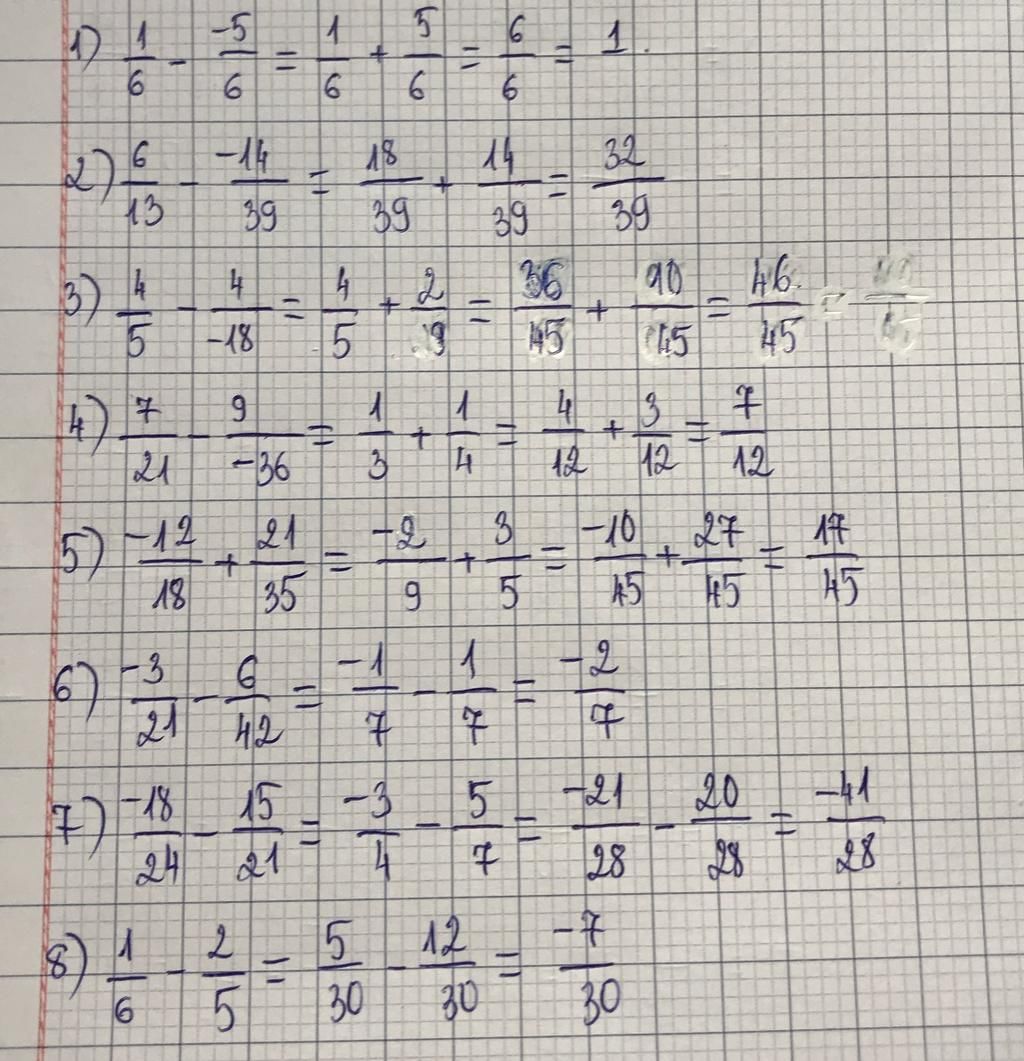 1) 1/6 - -5/6 = 1/6 + 5/6 = 6/6 = 1.
2) 6/13 - -14/39 = 18/39 + 14/39 = 32/39
3) 4/5 - 4/-18 = 4/5 + 2/9 = 36/45 + 10/45 = 46/45 =
4) 7/21 - 9/-36 = 1/3 + 1/4 = 4/12 + 3/12 = 7/12
5) -12/18 + 21/35 = -2/9 + 3/5 = -10/45 + 27/45 = 17/45
6) -3/21 - 6/42 = -1/7 - 1/7 = -2/7
7) -18/24 - 15/21 = -3/4 - 5/7 = -21/28 - 20/28 = -41/28
8) 1/6 - 2/5 = 5/30 - 12/30 = -7/30